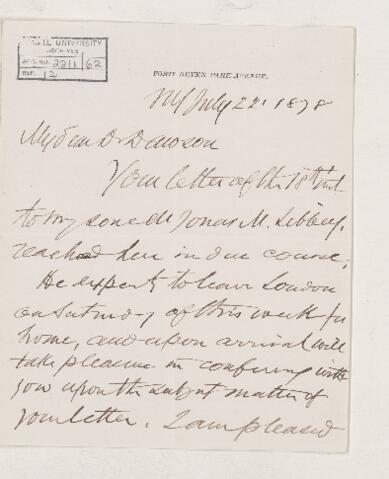 McGILL UNIVERSITY
ARCHIVES
ACC. NO. 2211/62
REF. 12
FORTY SEVEN PARK AVENUE.
NY July 22d 1878
My dear Dr Dawson
Your letter of the 18th inst
to my son Mr Jonas M. Libbey,
reached here in due course.
He expects to leave London
on Saturday of this week for
home, and upon arrival will
take pleasure in conferring with
you upon the subject matter of
your letter. I am pleased